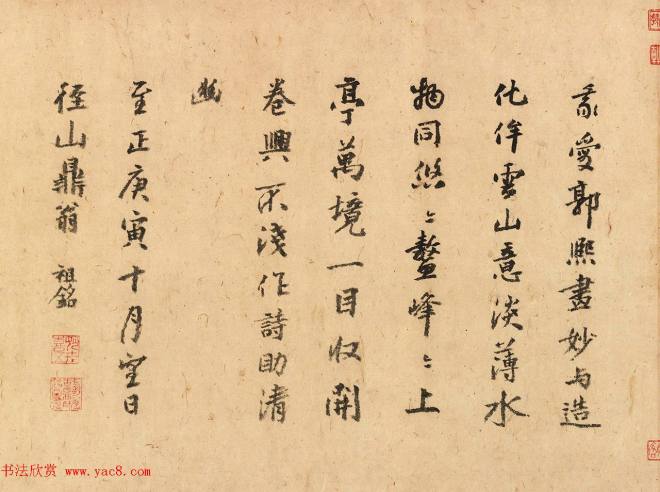 我愛郭熈畫妙与造
化侔雲山意淡薄水
物同悠〻鼇峰〻上
亭萬境一目収開
卷興不淺作詩助清
幽
至正庚寅十月望日
徑山鼎翁 祖銘
书法欣赏 www.yac8.com